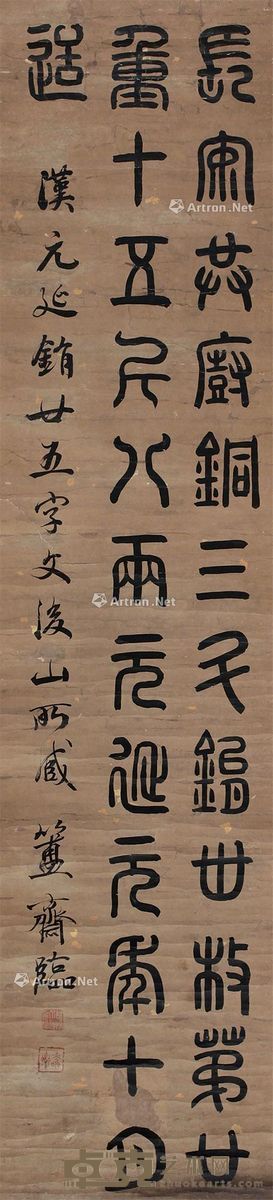 長安共廚銅三斗鋗廿枚第廿
重十五斤八兩元延元年十月
造
漢元延鋗廿五字文後山所藏 簠齋臨
Artron.Net
Artron.Net
Artron.Net